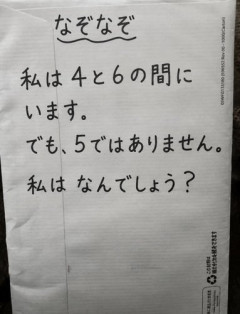 なぞなぞ
私は４と６の間に
います。
でも、５ではありません。
私は なんでしょう？